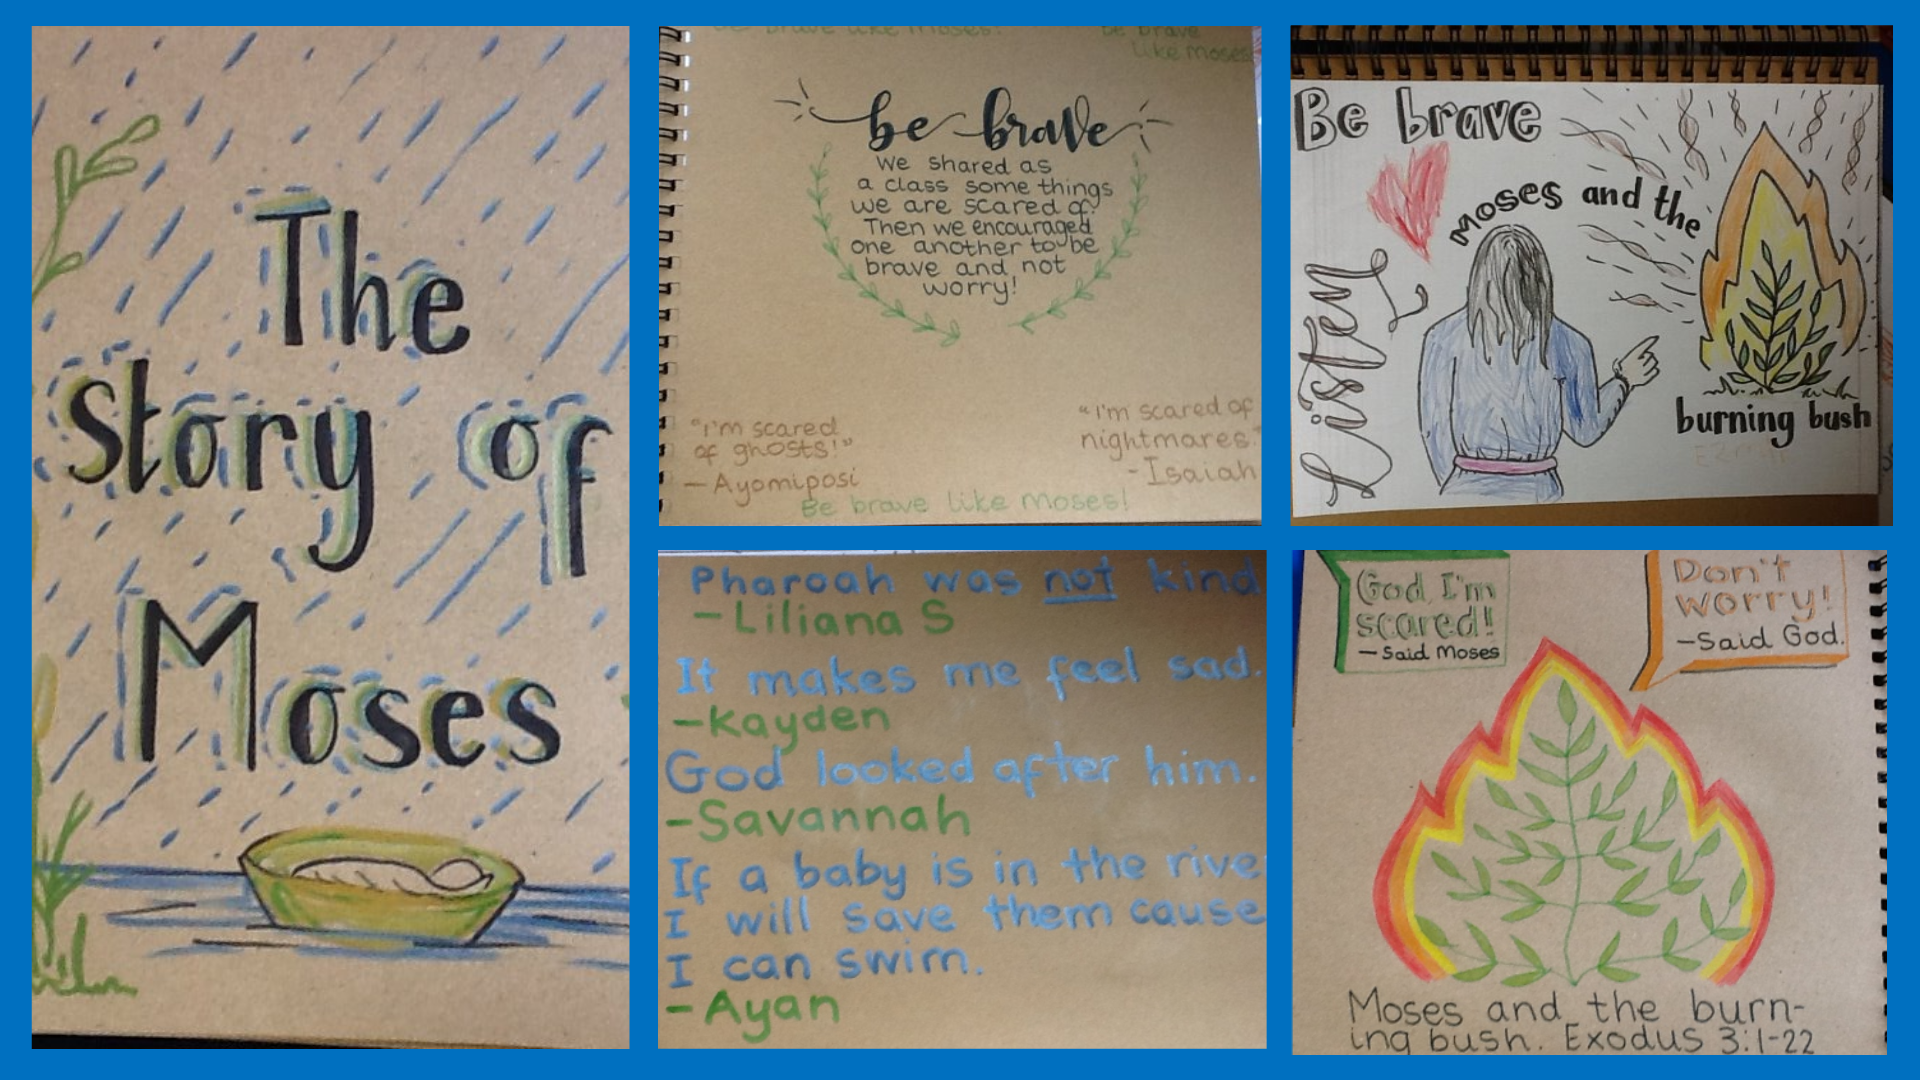 The
Story of
Moses
Be brave like Moses!
Be brave
like Moses!
be brave
We shared as
a class some things
we are scared of.
Then we encouraged
one another to be
brave and not
worry!
"I'm scared
of ghosts!"
- Ayomiposi
"I'm scared of
nightmares."
- Isaiah
Be brave like Moses!
Be brave
Listen
Moses and the
burning bush
Pharoah was not kind
- Liliana S
It makes me feel sad.
- Kayden
God looked after him.
- Savannah
If a baby is in the rive
I will save them cause
I can swim.
- Ayan
God I'm
scared!
- Said Moses
Don't
worry!
- Said God.
Moses and the burn-
ing bush. Exodus 3:1-22